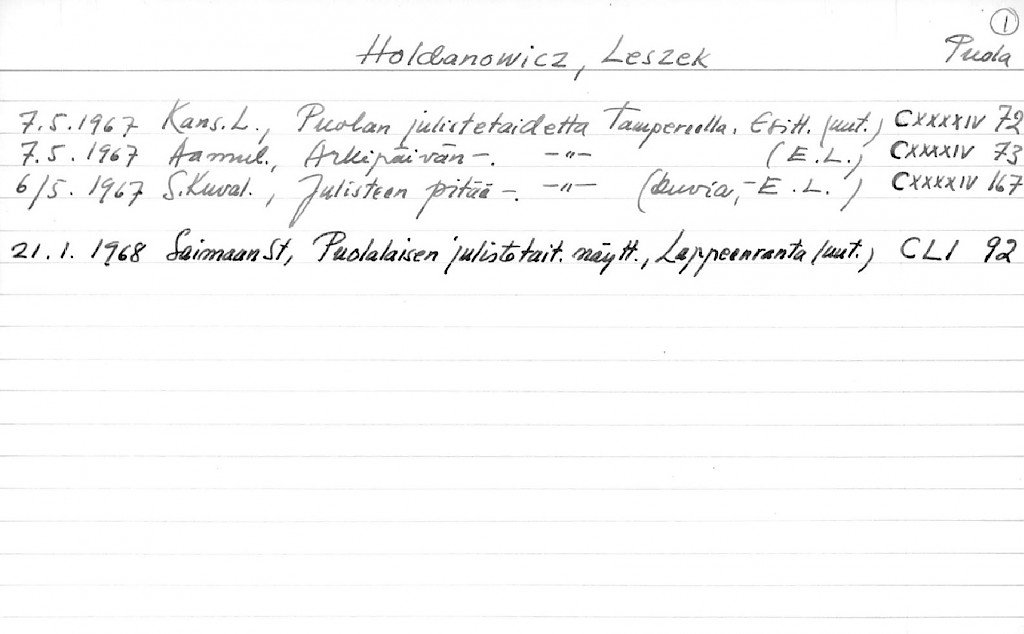 1
Holdanowicz, Leszek Puola
7.5.1967 Kans.L., Puolan julistetaidetta Tampereella. Esitt. (uut.) CXXXXIV 72
7.5.1967 Aamul., Arkipäivän -. -"- (E.L.) CXXXXIV 73
6/5.1967 S.Kuval., Julisteen pitää -. -"- (kuvia, - E.L.) CXXXXIV 167
21.1.1968 Saimaan St, Puolalaisen julistetait. näytt., Lappeenranta (uut.) CLI 92